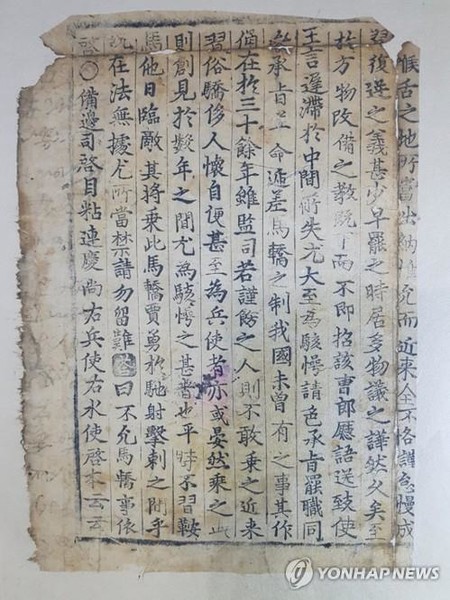 喉舌之地所當出納惟允而近來全不恪謹怠慢成
習復逆之義甚少早罷之時居多物議之譁然久矣至
於方物改備之教既下而不即招該曹郎廳語送致使
王言遲滯於中間所失尤大至爲駭愕請色承旨罷職同
參承旨並命遞差馬轎之制我國未曾有之事其作
俑在於三十餘年雖監司若謹飭之人則不敢乘之近來
習俗驕侈人懷自便甚至爲兵使者亦或晏然乘之此
則創見於數年之間尤爲駭愕之甚者也平時不習鞍
馬他日臨敵其將乘此馬轎賈勇於馳射擊刺之間乎
況在法無據尤所當禁請勿留難答曰不允馬轎事依
啓○備邊司啓目粘連慶尙右兵使右水使啓本云云
YONHAP NEWS